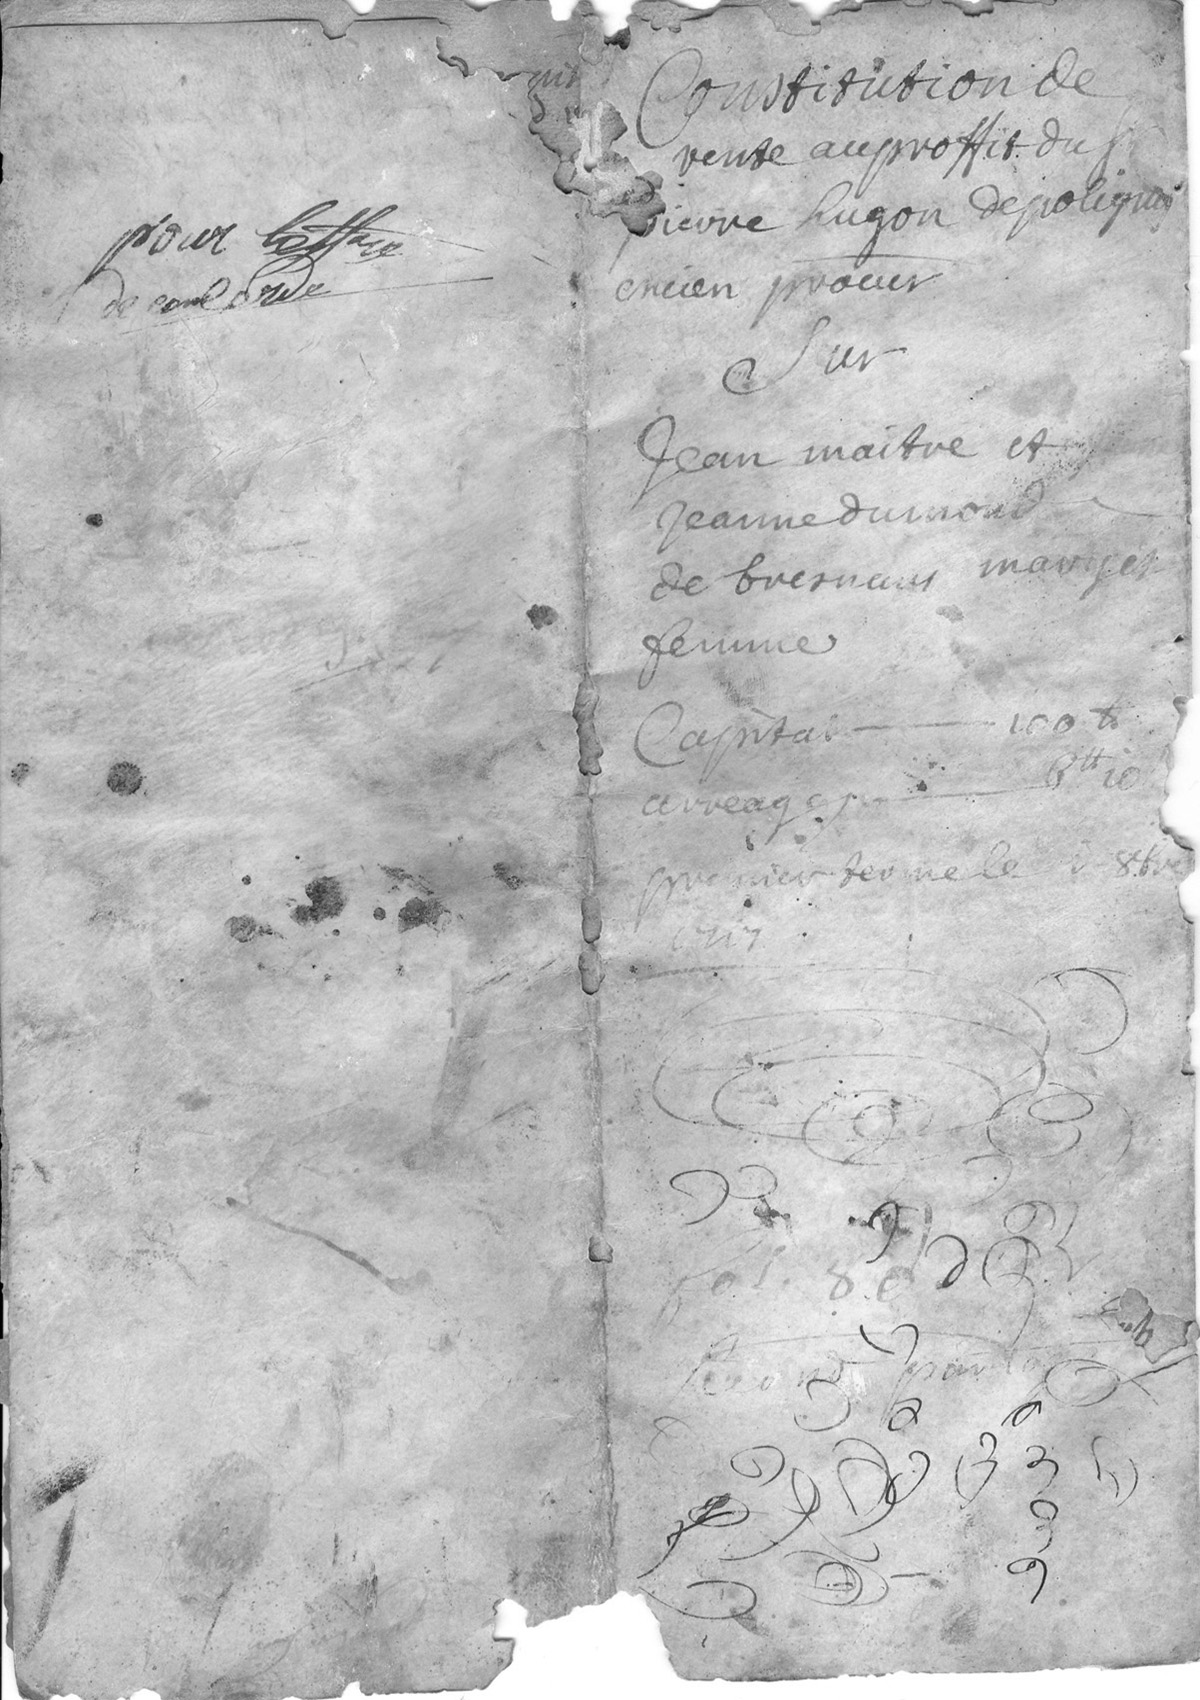 pour lettre
de
Constitution de
rente au proffit du Sr
pierre hugon de poligny
encien procur
Sur
Jean maitre et
Jeanne dumond
de bresnans mary et
femme
Capital 100 tt
arreages 6 tt 10
premier terme le 8bre
fol. 8